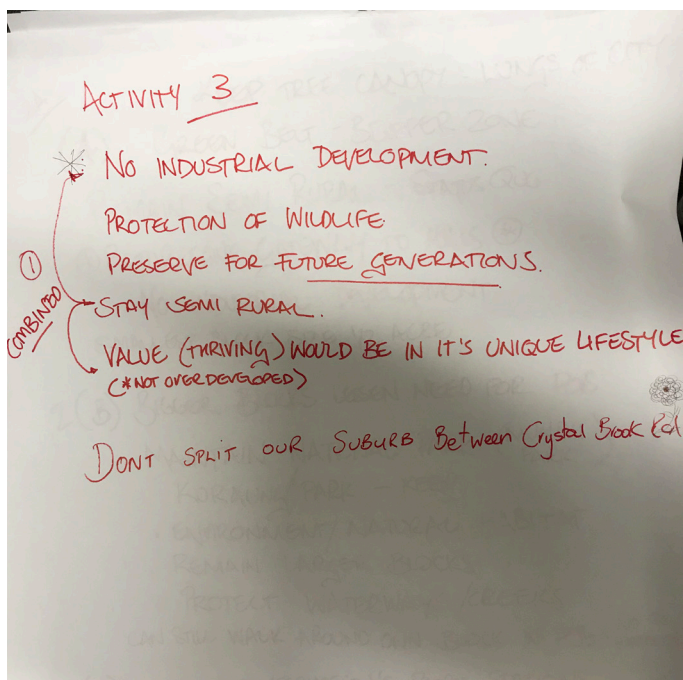 ACTIVITY 3
* NO INDUSTRIAL DEVELOPMENT.
PROTECTION OF WILDLIFE.
PRESERVE FOR FUTURE GENERATIONS.
① COMBINED
STAY SEMI RURAL.
VALUE (THRIVING) WOULD BE IN IT'S UNIQUE LIFESTYLE
(*NOT OVERDEVELOPED)
DONT SPLIT OUR SUBURB Between Crystal Brook Rd